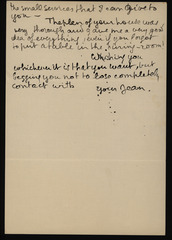 the small services that I can give to
you —
The plan of your house was
very thorough and gave me a very good
idea of everything, even if you forgot
to put a table in the dining-room!
Wishing you
whichever it is that you want, but
begging you not to lose completely
contact with
your Joan.